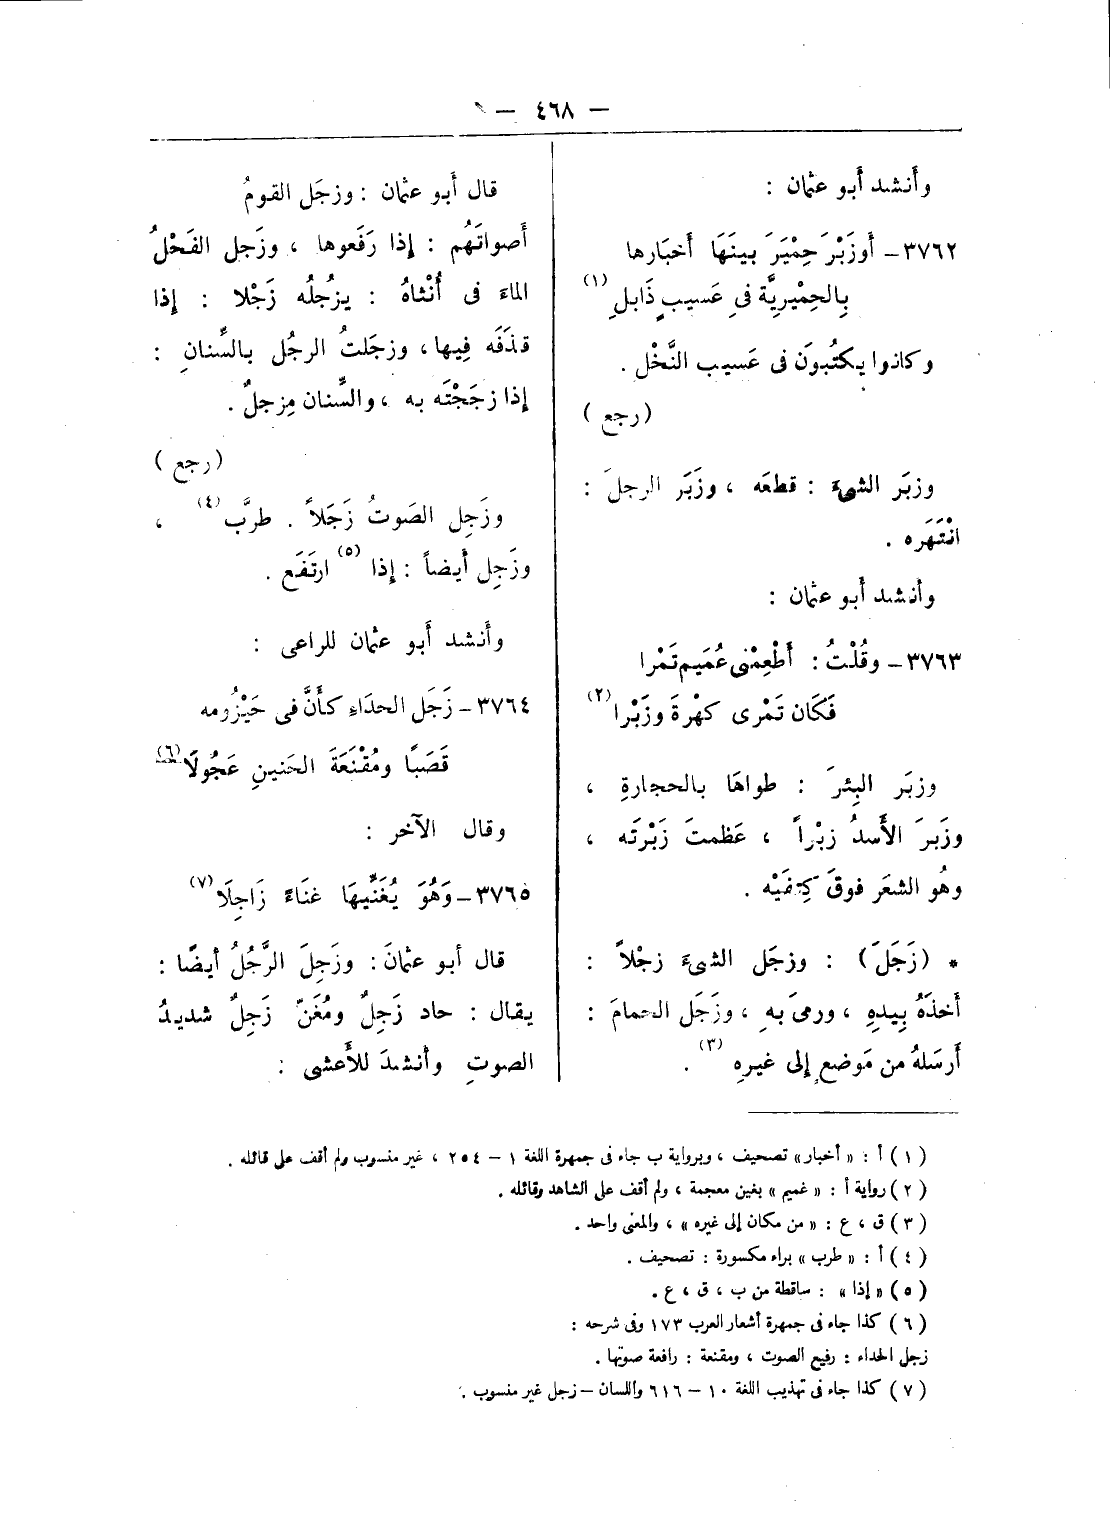 — ٤٦٨ —
وأنشد أبو عثمان :
٣٧٦٢ – أوزَبْرَ حِمْيَرَ بينَهَا أخبَارها
بِالحِمْيريَّة فىِ عَسيبٍ ذَابلِ (١)
وكانوا يكتُبونَ فى عَسيب النَّخْل .
(رجع )
وزبَر الشىءَ : قطعَه ، وزَبَر الرجلَ :
انْتَهَره .
وأنشد أبو عثمان :
٣٧٦٣ – وقُلْتُ : أَطْعِمْنى عُمَيم تَمْرا
فَكَان تَمْرى كهْرةَ وزَبْرا (٢)
وزبَر البِئرَ : طواهَا بالحجارةِ ،
وزَبرَ الأَسدُ زبْراً ، عَظمتَ زَبْرَته ،
وهُو الشعَر فوقَ كتفَيْه .
* (زَجَلَ) : وزجَل الشىءَ زجْلاً :
أخذَهُ بِيدِهِ ، ورمىَ بهِ ، وزَجَل الحمامَ :
أَرسَلهُ من مَوضعٍ إلى غيرهِ (٣) .
قال أَبو عثمان : وزجَل القومُ
أَصواتَهُم : إذا رَفَعوها ، وزَجل الفَحْلُ
الماءَ فى أُنْثاهُ : يزجُلُه زَجْلا : إذا
قذفَه فِيها ، وزجَلتُ الرجُل بالسِّنانِ :
إذا زجَجْتَه به ، والسِّنان مِزجلٌ .
(رجع )
وزَجِل الصَوتُ زَجَلاً . طرَّب (٤) ،
وزَجِل أَيضاً : إذا (٥) ارتَفَع .
وأَنشد أَبو عثمان للراعى :
٣٧٦٤ – زَجَل الحدَاءِ كأَنَّ فى حَيْزُومه
قَصَبًا ومُقْنَعَةَ الحَنينِ عَجُولًا (٦)
وقال الآخر :
٣٧٦٥ – وَهُوَ يُغَنِّيهَا غنَاءً زَاجِلَا (٧)
قال أبو عثمانَ : وزَجِلَ الرَّجُلُ أيضًا :
يقال : حاد زَجِلٌ ومُغَنّ زَجِلٌ شديدُ
الصوتِ وأنشدَ للأَعشى :
( ١ ) أ : « أخبار» تصحيف ، وبرواية ب جاء فى جمهرة اللغة ١ – ٢٥٤ ، غير منسوب ولم أقف على قائله .
( ٢ ) رواية أ : « غميم » بغين معجمة ، ولم أقف على الشاهد وقائله .
( ٣ ) ق ، ع : « من مكان إلى غيره » ، والمعنى واحد .
( ٤ ) أ : « طرب » براء مكسورة : تصحيف .
( ٥ ) « إذا » : ساقطة من ب ، ق ، ع .
( ٦ ) كذا جاء فى جمهرة أشعار العرب ١٧٣ وفى شرحه :
زجل الحداء : رفيع الصوت ، ومقنعة : رافعة صوتها .
( ٧ ) كذا جاء فى تهذيب اللغة ١٠ – ٦١٦ واللسان – زجل غير منسوب .